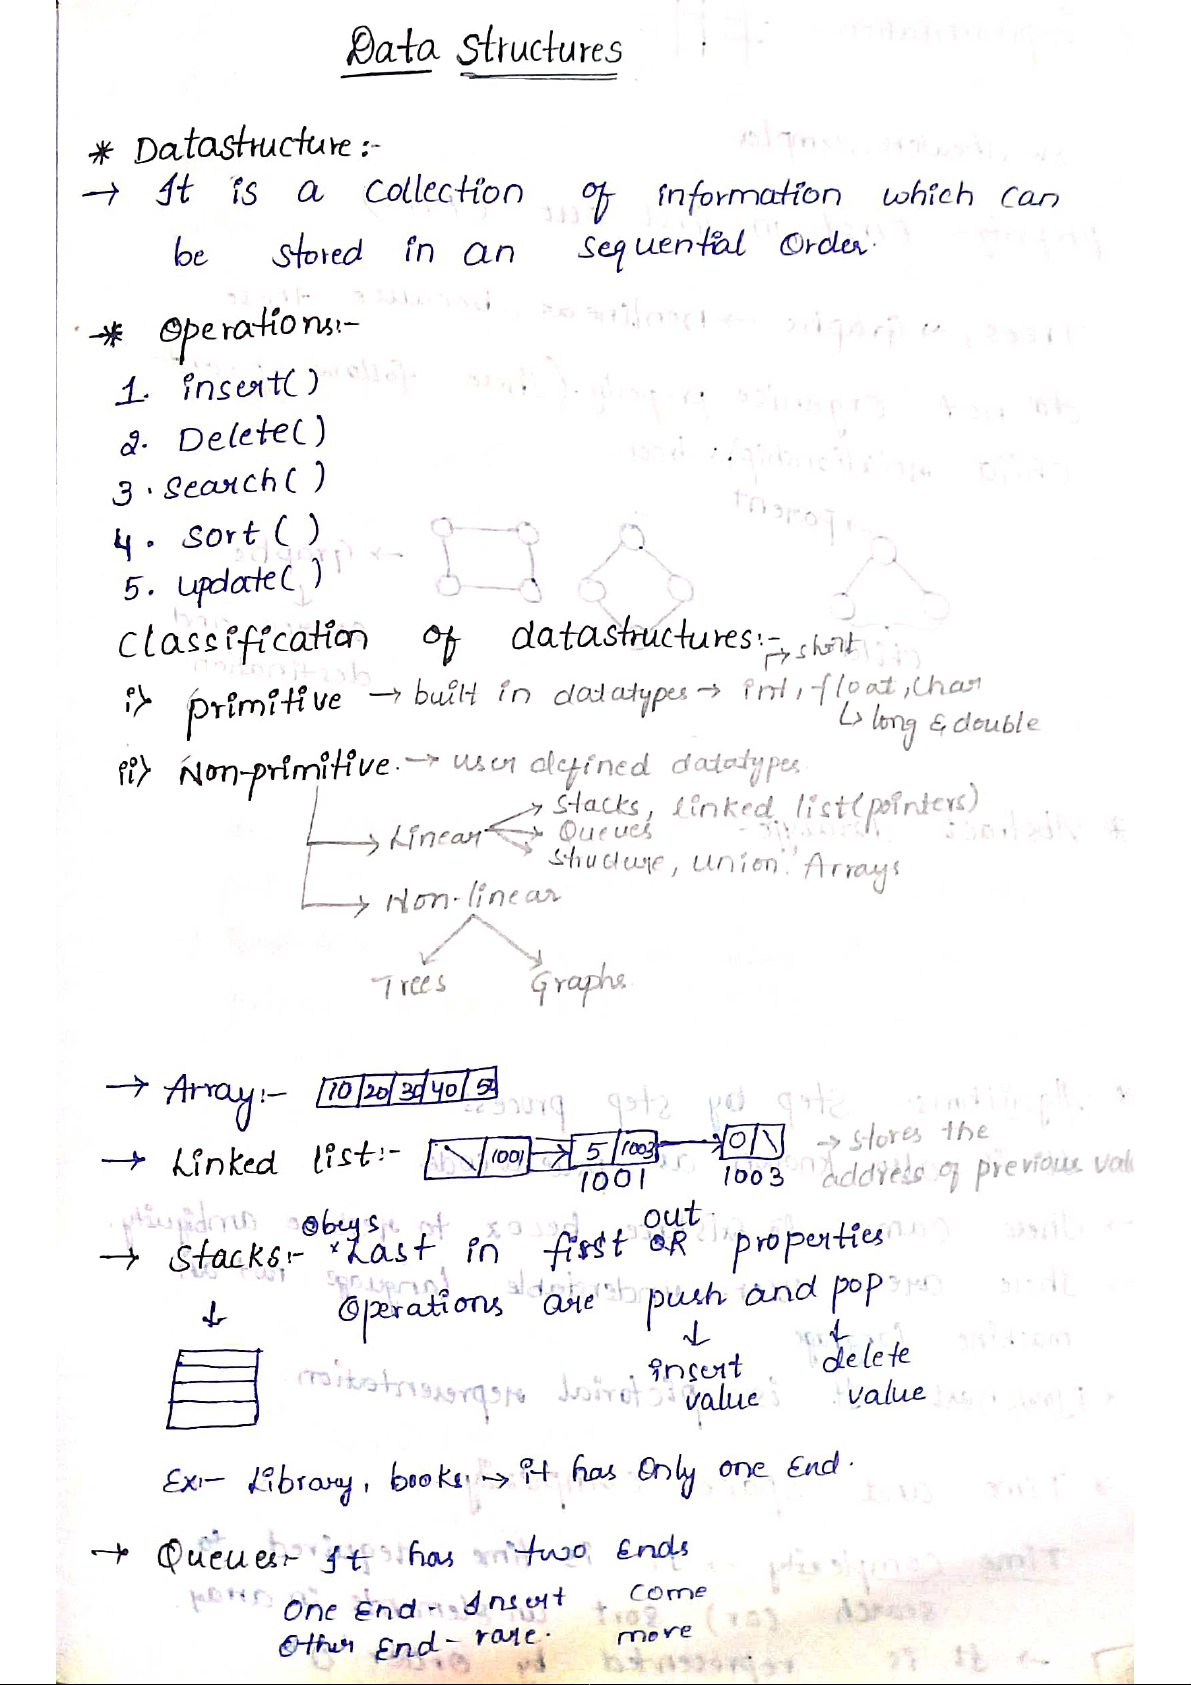 Data Structures
* Datastructure :-
→ It is a collection of information which can
be stored in an sequential order.
* Operations:-
1. insert()
2. Delete()
3. Search()
4. Sort()
5. update()
Classification of datastructures:-
→ short
i) primitive → built in datatypes → int, float, char
↳ long & double
ii) Non-primitive. → user defined datatypes
→ Stacks, linked list(pointers)
→ Linear → Queues
structure, union, Arrays
→ Non-linear
Trees Graphs
→ Array:- 10 20 30 40 50
→ Linked list:- 1001 → 5 1003 → 0 → stores the
1001 1003 address of previous val
obeys out
→ Stacks:- *Last in first OR properties
↓ Operations are push and pop
↓ ↓
insert delete
value value
Ex:- Library, books → it has only one End.
→ Queues:- It has two Ends
One End - Insert come
Other End - rare. more